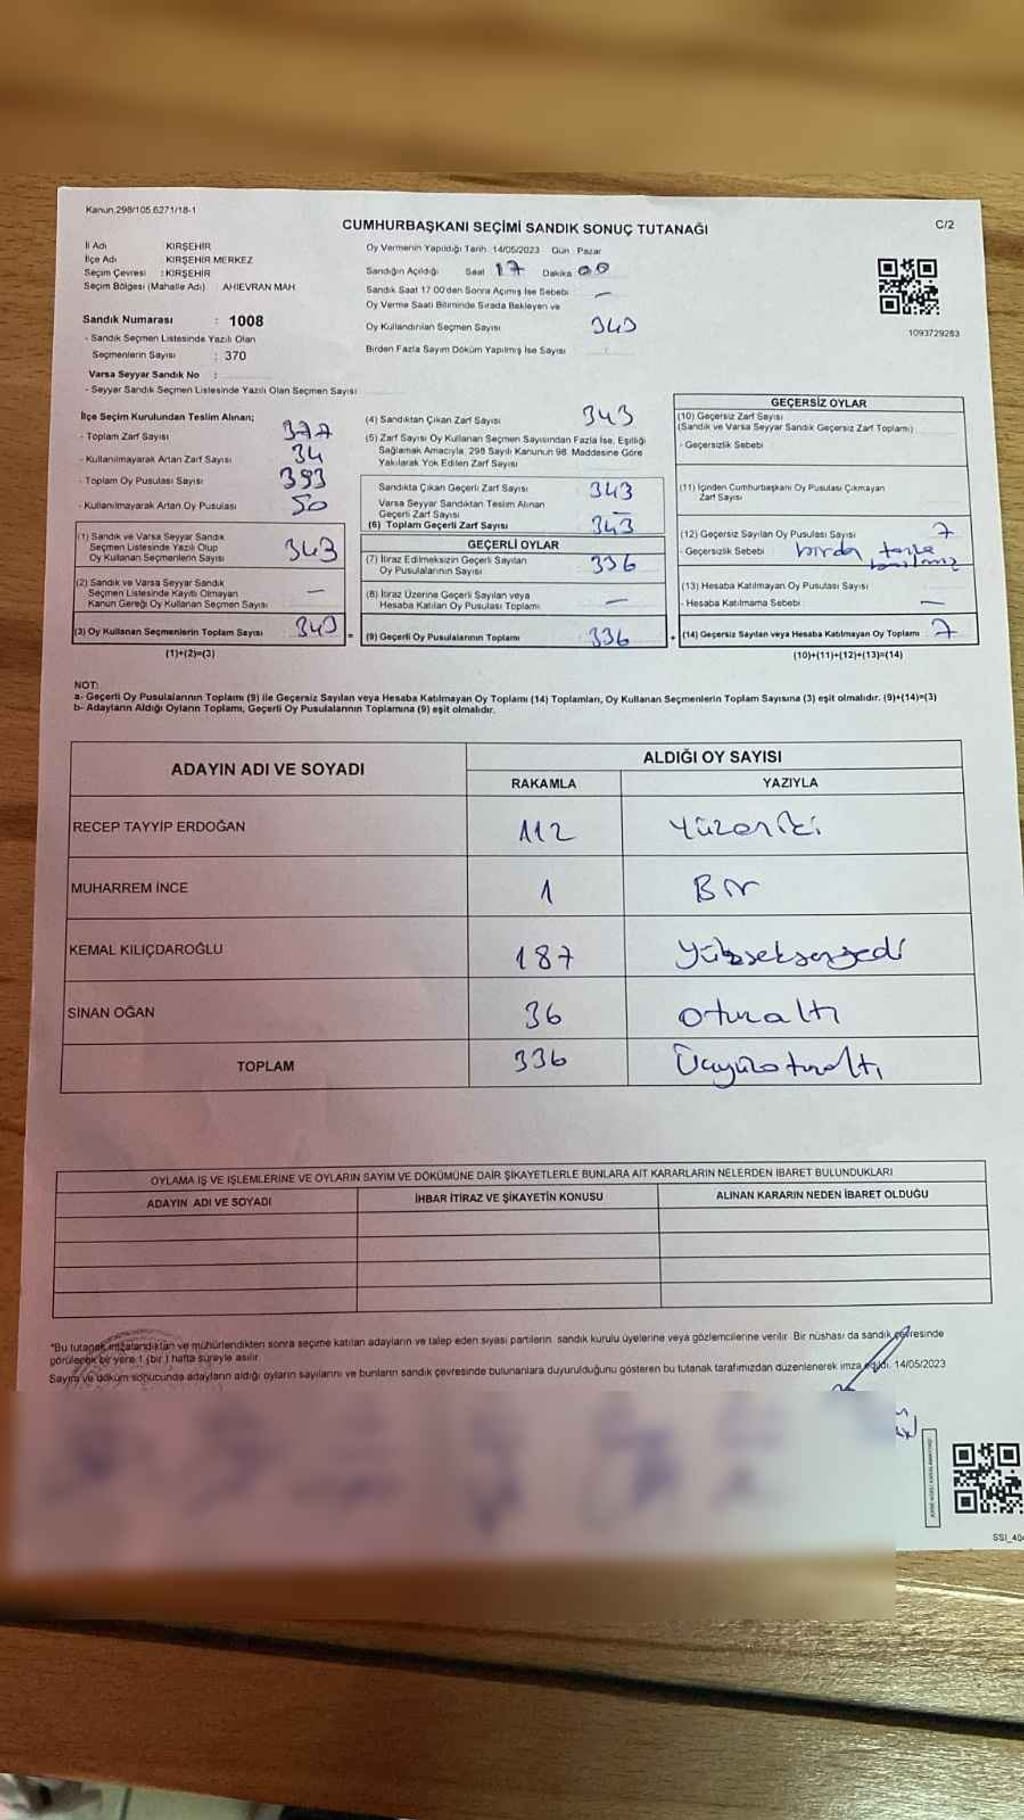 Kanun.298/105.6271/18-1
C/2
CUMHURBAŞKANI SEÇİMİ SANDIK SONUÇ TUTANAĞI
İl Adı KIRŞEHİR
İlçe Adı KIRŞEHİR MERKEZ
Seçim Çevresi : KIRŞEHİR
Seçim Bölgesi (Mahalle Adı) AHİEVRAN MAH.
Sandık Numarası : 1008
- Sandık Seçmen Listesinde Yazılı Olan
Seçmenlerin Sayısı : 370
Varsa Seyyar Sandık No :
- Seyyar Sandık Seçmen Listesinde Yazılı Olan Seçmen Sayısı
Oy Vermenin Yapıldığı Tarih 14/05/2023 Gün Pazar
Sandığın Açıldığı Saat 17 Dakika 00
Sandık Saat 17.00'den Sonra Açımış İse Sebebi —
Oy Verme Saati Bitiminde Sırada Bekleyen ve
Oy Kullandırılan Seçmen Sayısı 343
Birden Fazla Sayım Döküm Yapılmış İse Sayısı
1093729283
İlçe Seçim Kurulundan Teslim Alınan;
- Toplam Zarf Sayısı 377
- Kullanılmayarak Artan Zarf Sayısı 34
- Toplam Oy Pusulası Sayısı 393
- Kullanılmayarak Artan Oy Pusulası 50
(1) Sandık ve Varsa Seyyar Sandık
Seçmen Listesinde Yazılı Olup
Oy Kullanan Seçmenlerin Sayısı 343
(2) Sandık ve Varsa Seyyar Sandık
Seçmen Listesinde Kayıtlı Olmayan
Kanun Gereği Oy Kullanan Seçmen Sayısı —
(3) Oy Kullanan Seçmenlerin Toplam Sayısı 343 =
(1)+(2)=(3)
(4) Sandıktan Çıkan Zarf Sayısı 343
(5) Zarf Sayısı Oy Kullanan Seçmen Sayısından Fazla İse, Eşitliği
Sağlamak Amacıyla, 298 Sayılı Kanunun 98. Maddesine Göre
Yakılarak Yok Edilen Zarf Sayısı
Sandıkta Çıkan Geçerli Zarf Sayısı 343
Varsa Seyyar Sandıktan Teslim Alınan
Geçerli Zarf Sayısı —
(6) Toplam Geçerli Zarf Sayısı 343
GEÇERLİ OYLAR
(7) İtiraz Edilmeksizin Geçerli Sayılan
Oy Pusulalarının Sayısı 336
(8) İtiraz Üzerine Geçerli Sayılan veya
Hesaba Katılan Oy Pusulası Toplamı —
(9) Geçerli Oy Pusulalarının Toplamı 336 +
GEÇERSİZ OYLAR
(10) Geçersiz Zarf Sayısı
(Sandık ve Varsa Seyyar Sandık Geçersiz Zarf Toplamı)
- Geçersizlik Sebebi
(11) İçinden Cumhurbaşkanı Oy Pusulası Çıkmayan
Zarf Sayısı
(12) Geçersiz Sayılan Oy Pusulası Sayısı 7
- Geçersizlik Sebebi birden fazla
(13) Hesaba Katılmayan Oy Pusulası Sayısı
- Hesaba Katılmama Sebebi —
(14) Geçersiz Sayılan veya Hesaba Katılmayan Oy Toplamı 7
(10)+(11)+(12)+(13)=(14)
NOT:
a- Geçerli Oy Pusulalarının Toplamı (9) ile Geçersiz Sayılan veya Hesaba Katılmayan Oy Toplamı (14) Toplamları, Oy Kullanan Seçmenlerin Toplam Sayısına (3) eşit olmalıdır. (9)+(14)=(3)
b- Adayların Aldığı Oyların Toplamı, Geçerli Oy Pusulalarının Toplamına (9) eşit olmalıdır.
ADAYIN ADI VE SOYADI ALDIĞI OY SAYISI
RAKAMLA YAZIYLA
RECEP TAYYİP ERDOĞAN 112 Yüzoniki
MUHARREM İNCE 1 Bir
KEMAL KILIÇDAROĞLU 187 Yüzseksenyedi
SİNAN OĞAN 36 otuzaltı
TOPLAM 336 Üçyüzotuzaltı
OYLAMA İŞ VE İŞLEMLERİNE VE OYLARIN SAYIM VE DÖKÜMÜNE DAİR ŞİKAYETLERLE BUNLARA AİT KARARLARIN NELERDEN İBARET BULUNDUKLARI
ADAYIN ADI VE SOYADI İHBAR İTİRAZ VE ŞİKAYETİN KONUSU ALINAN KARARIN NEDEN İBARET OLDUĞU
*Bu tutanak imzalandıktan ve mühürlendikten sonra seçime katılan adayların ve talep eden siyasi partilerin sandık kurulu üyelerine veya gözlemcilerine verilir. Bir nüshası da sandık çevresinde
görülecek bir yere 1 (bir) hafta süreyle asılır.
Sayım ve döküm sonucunda adayların aldığı oyların sayılarını ve bunların sandık çevresinde bulunanlara duyurulduğunu gösteren bu tutanak tarafımızdan düzenlenerek imza edildi. 14/05/2023